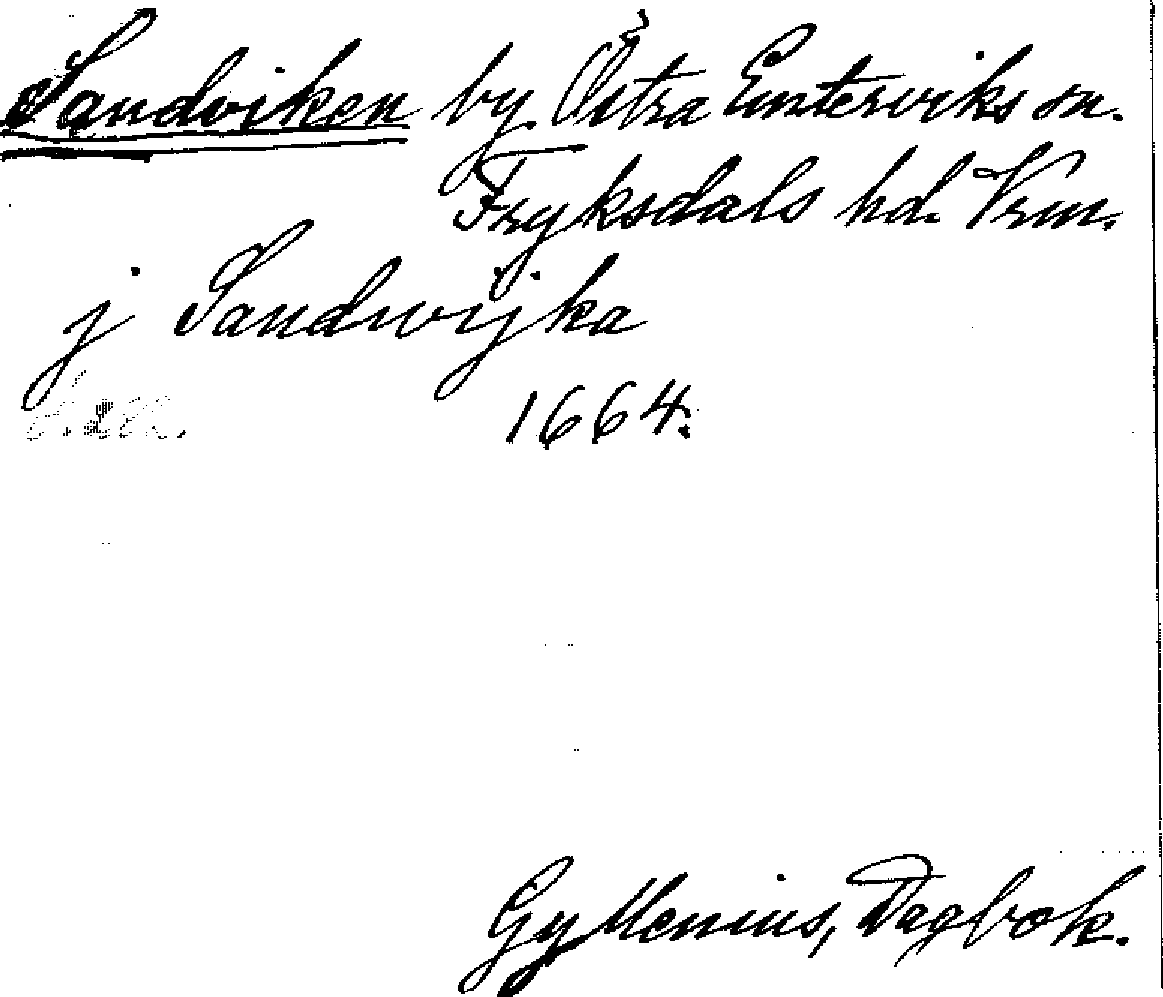 Sandviken by. Östra Emterviks sn.
Fryksdals hd. Vrm.
j Sandwijka
1664.
Gyllenius, Dagbok.